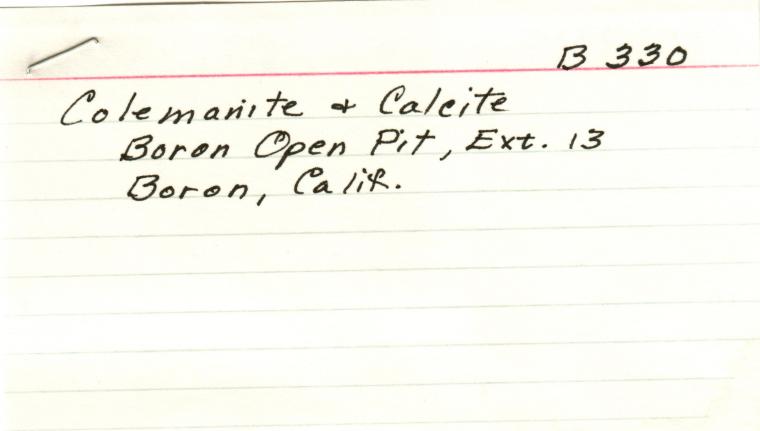 B 330
Colemanite & Calcite
Boron Open Pit, Ext. 13
Boron, Calif.